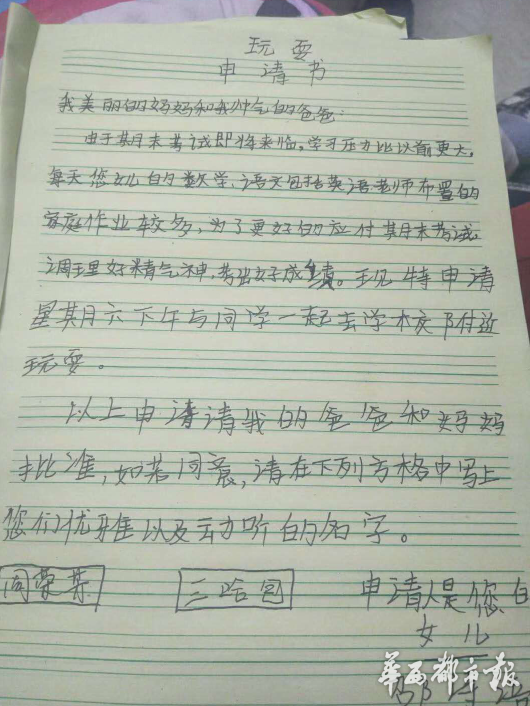 玩耍
申请书
我美丽的妈妈和我帅气的爸爸：
由于期末考试即将来临，学习压力比以前更大，
每天您女儿的数学、语文包括英语老师布置的
家庭作业较多，为了更好的应付期末考试，
调理好精气神，考出好成绩。现特申请
星期六下午与同学一起去学校附近
玩耍。
以上申请请我的爸爸和妈妈
批准，如若同意，请在下列方格中写上
您们优雅以及动听的名字。
三哈包 申请人是您的
女儿
华西都市报